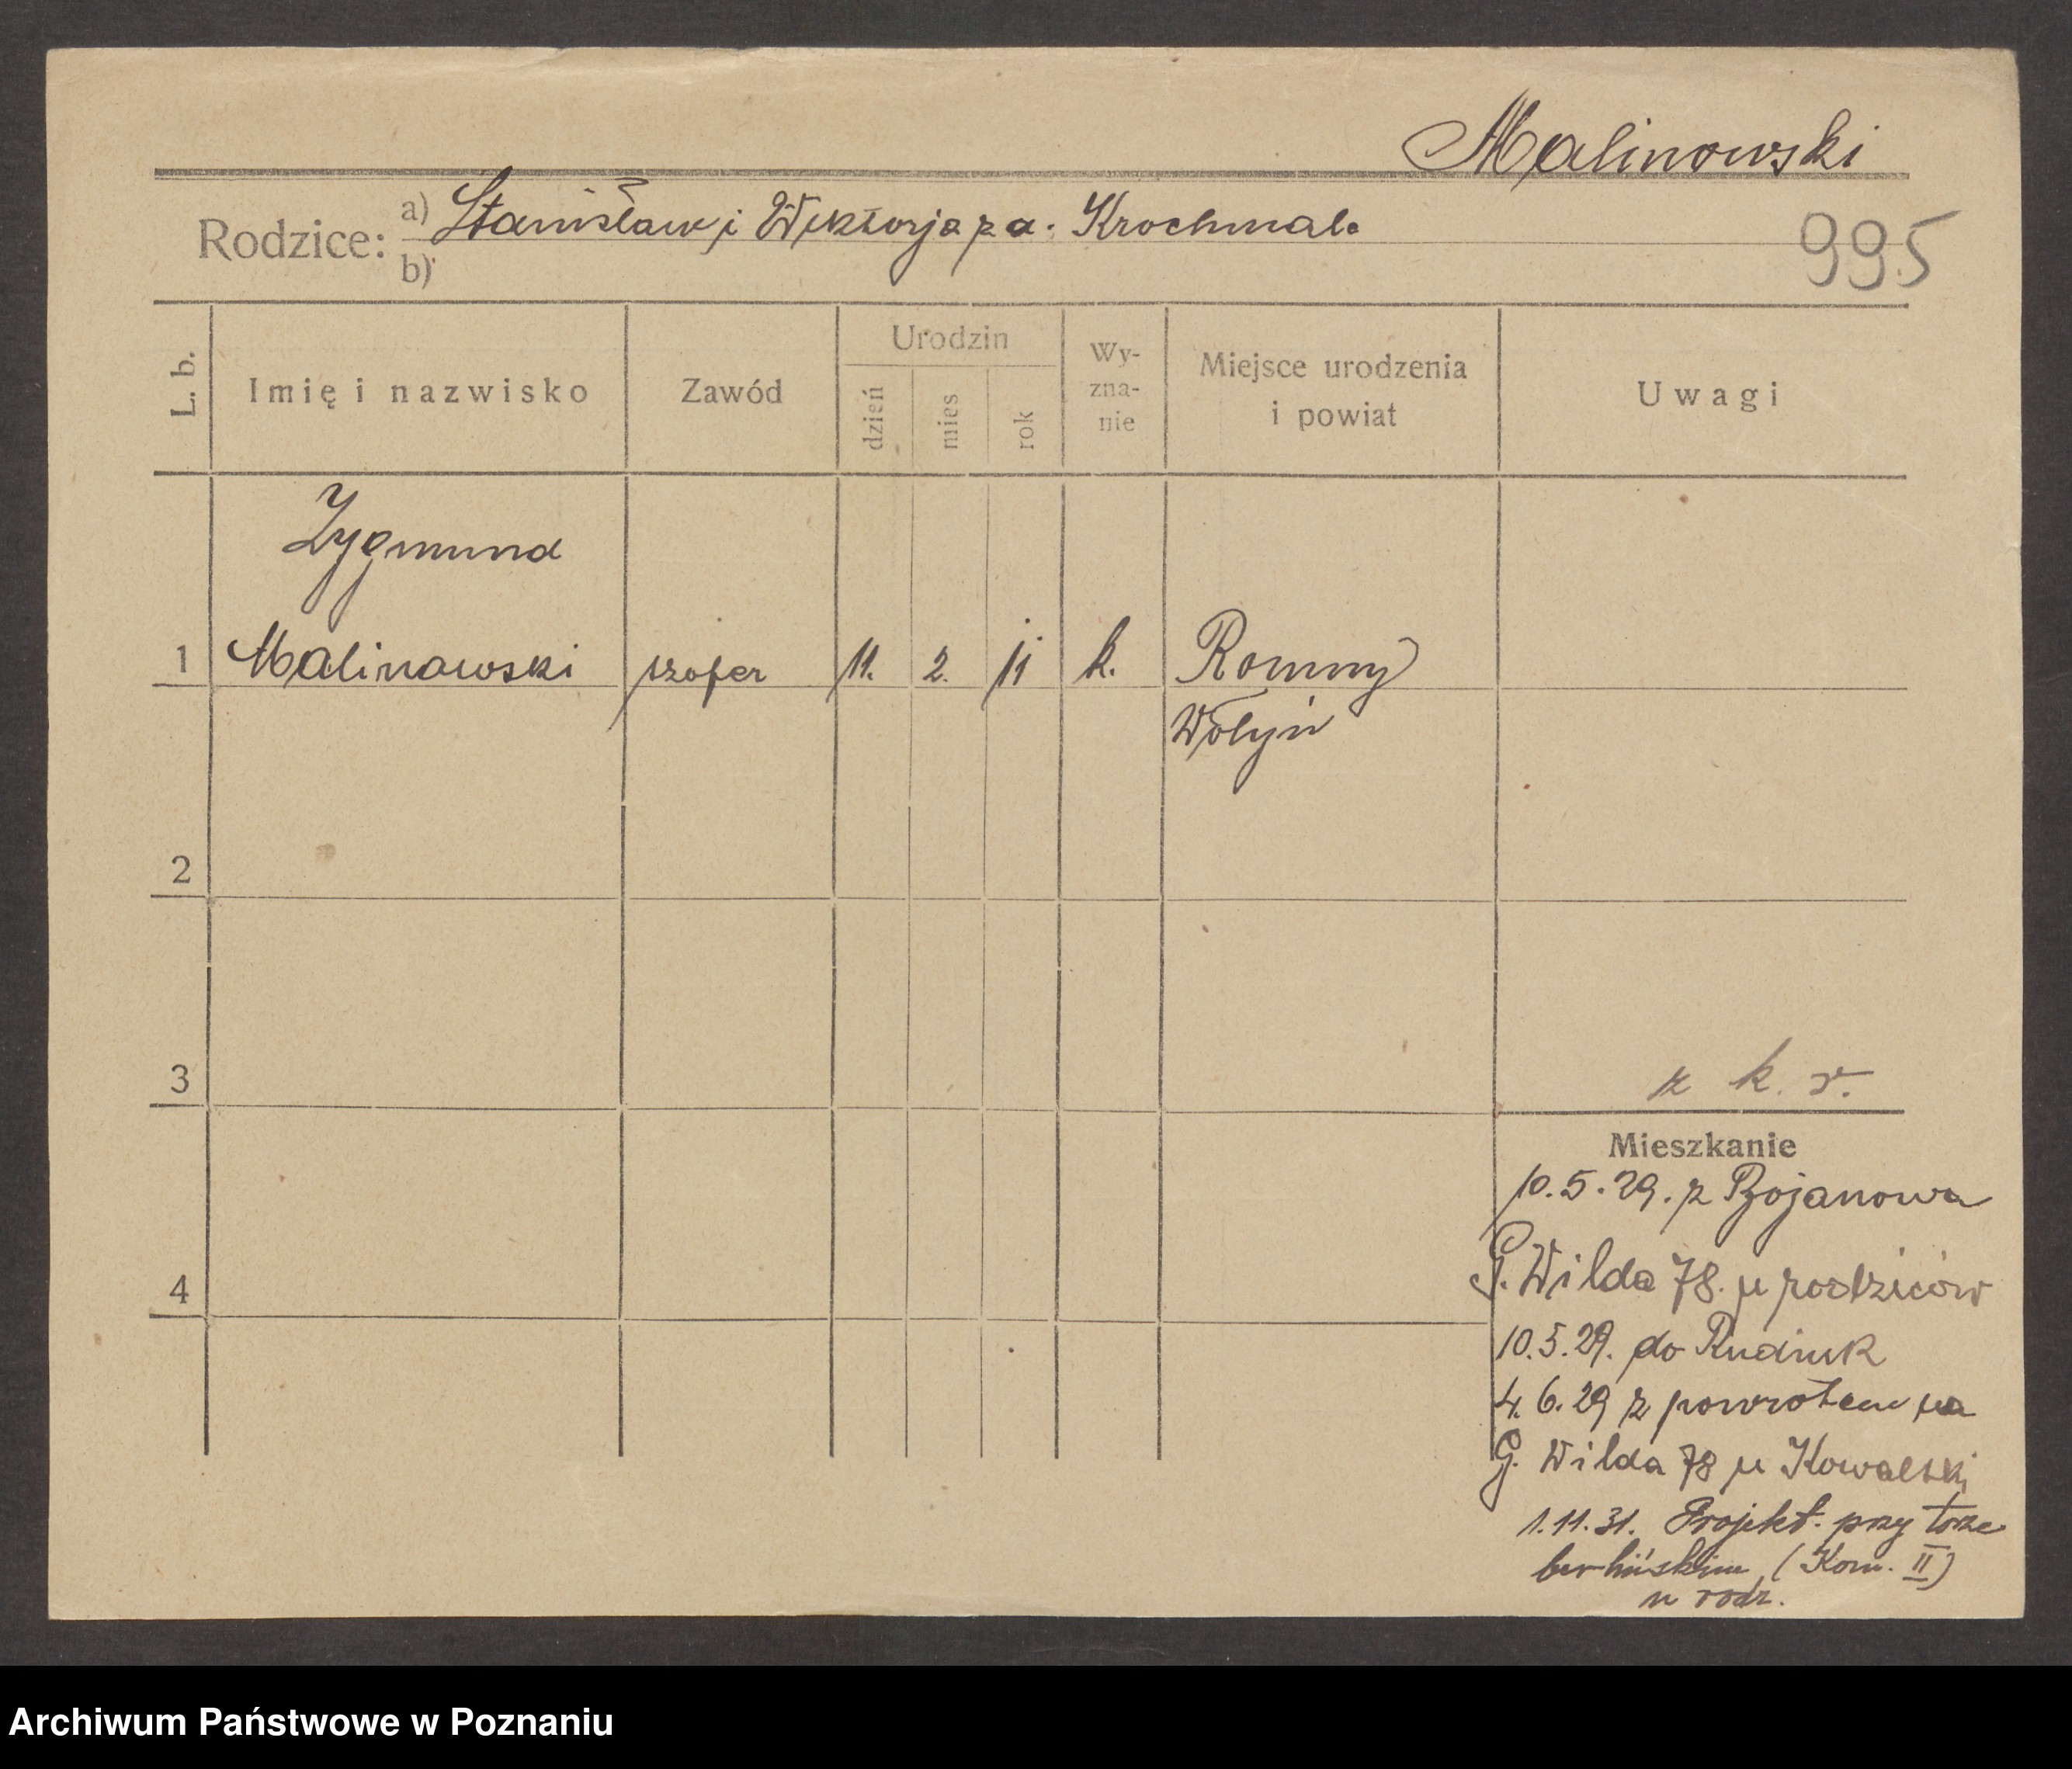 Malinowski
Rodzice: a) Stanisław i Wiktorja z d. Krochmal.
b)
995
L. b. Imię i nazwisko Zawód Urodzin dzień mies rok Wy-zna-nie Miejsce urodzenia i powiat Uwagi
Zygmund
1 Malinowski szofer 11. 2. 11 k. Romny
Wołyń
2
3
z k. r.
Mieszkanie
10.5.29. z Bojanowa
4
G. Wilda 78. u rodziców
10.5.29. do Rudnik
4.6.29 z powrotem na
G. Wilda 78 u Kowalski
1.11.31. Projekt. przy torze
berlińskim (Kom. II)
u rodz.
Archiwum Państwowe w Poznaniu